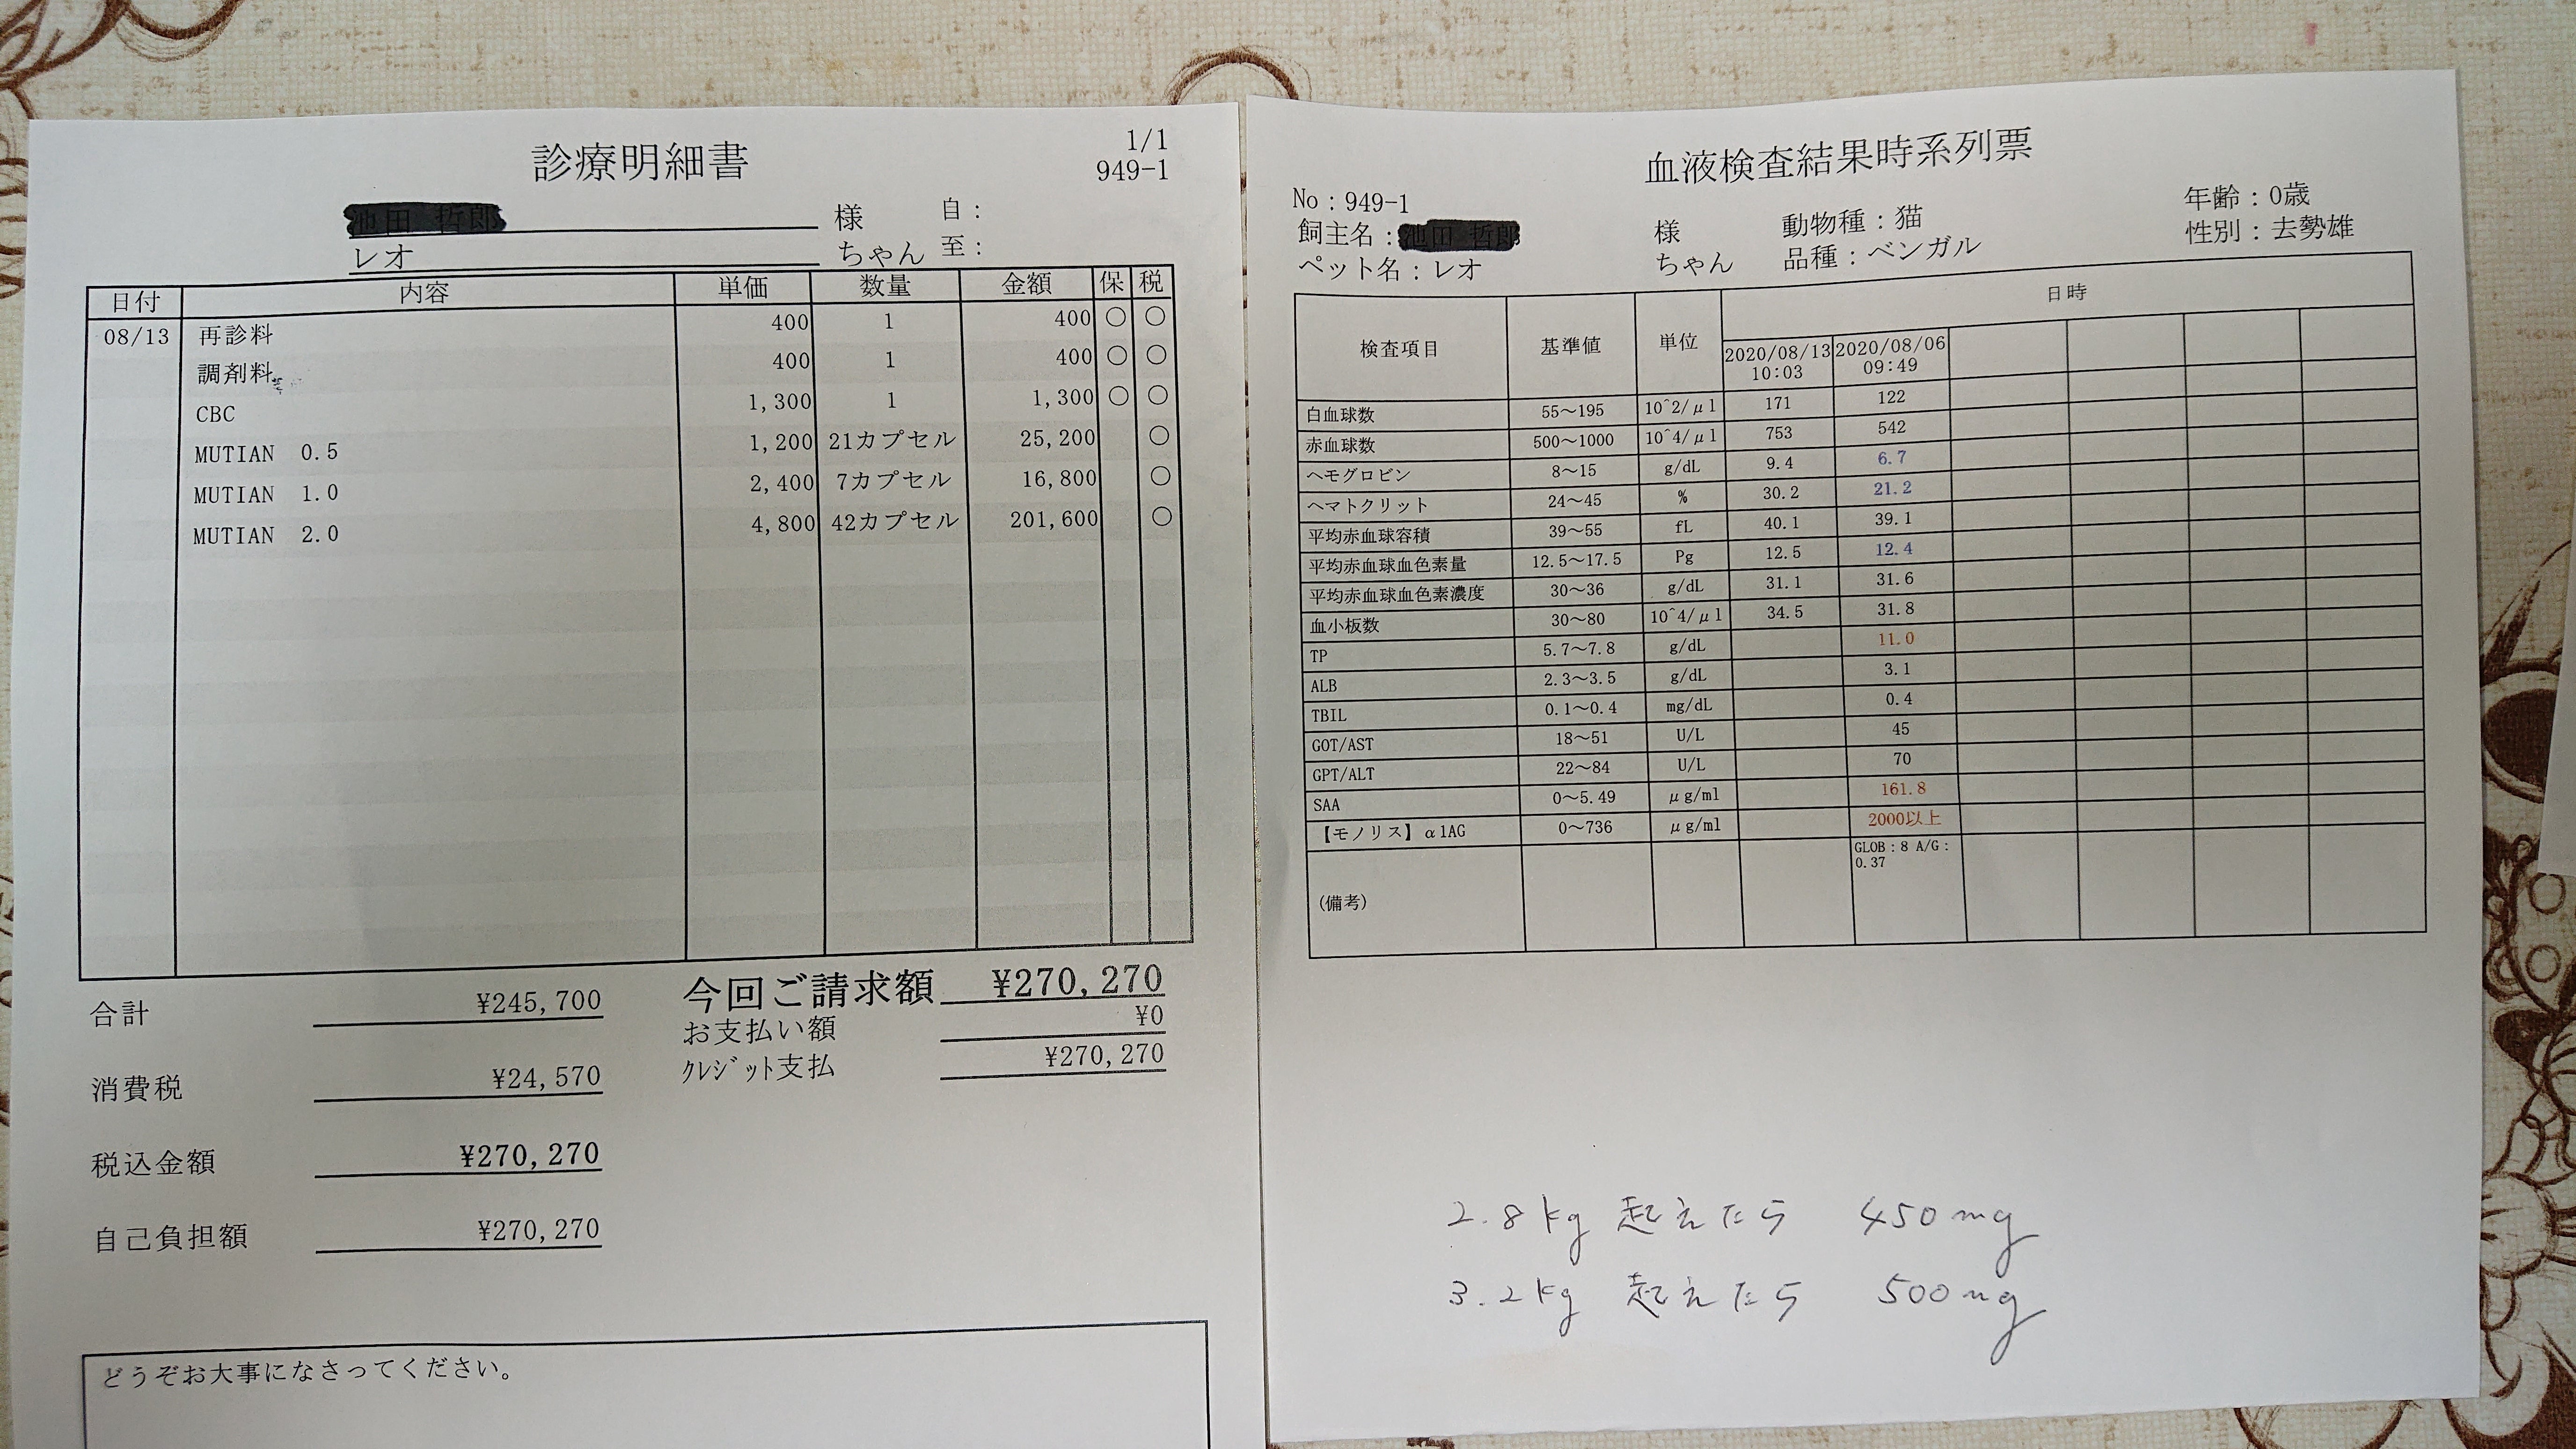 診療明細書
1/1
949-1
様 自：
レオ ちゃん 至：
日付 内容 単価 数量 金額 保 税
08/13 再診料 400 1 400 ○ ○
調剤料 400 1 400 ○ ○
CBC 1,300 1 1,300 ○ ○
MUTIAN 0.5 1,200 21カプセル 25,200 ○
MUTIAN 1.0 2,400 7カプセル 16,800 ○
MUTIAN 2.0 4,800 42カプセル 201,600 ○
合計 ¥245,700
消費税 ¥24,570
税込金額 ¥270,270
自己負担額 ¥270,270
今回ご請求額 ¥270,270
お支払い額 ¥0
ｸﾚｼﾞｯﾄ支払 ¥270,270
どうぞお大事になさってください。
血液検査結果時系列票
No：949-1
飼主名： 様 動物種：猫 年齢：0歳
ペット名：レオ ちゃん 品種：ベンガル 性別：去勢雄
検査項目 基準値 単位 日時
2020/08/13 10:03 2020/08/06 09:49
白血球数 55～195 10^2/μl 171 122
赤血球数 500～1000 10^4/μl 753 542
ヘモグロビン 8～15 g/dL 9.4 6.7
ヘマトクリット 24～45 % 30.2 21.2
平均赤血球容積 39～55 fL 40.1 39.1
平均赤血球血色素量 12.5～17.5 Pg 12.5 12.4
平均赤血球血色素濃度 30～36 g/dL 31.1 31.6
血小板数 30～80 10^4/μl 34.5 31.8
TP 5.7～7.8 g/dL 11.0
ALB 2.3～3.5 g/dL 3.1
TBIL 0.1～0.4 mg/dL 0.4
GOT/AST 18～51 U/L 45
GPT/ALT 22～84 U/L 70
SAA 0～5.49 μg/ml 161.8
【モノリス】α1AG 0～736 μg/ml 2000以上
(備考) GLOB：8 A/G：
0.37
2.8kg 起えたら 450mg
3.2kg 起えたら 500mg